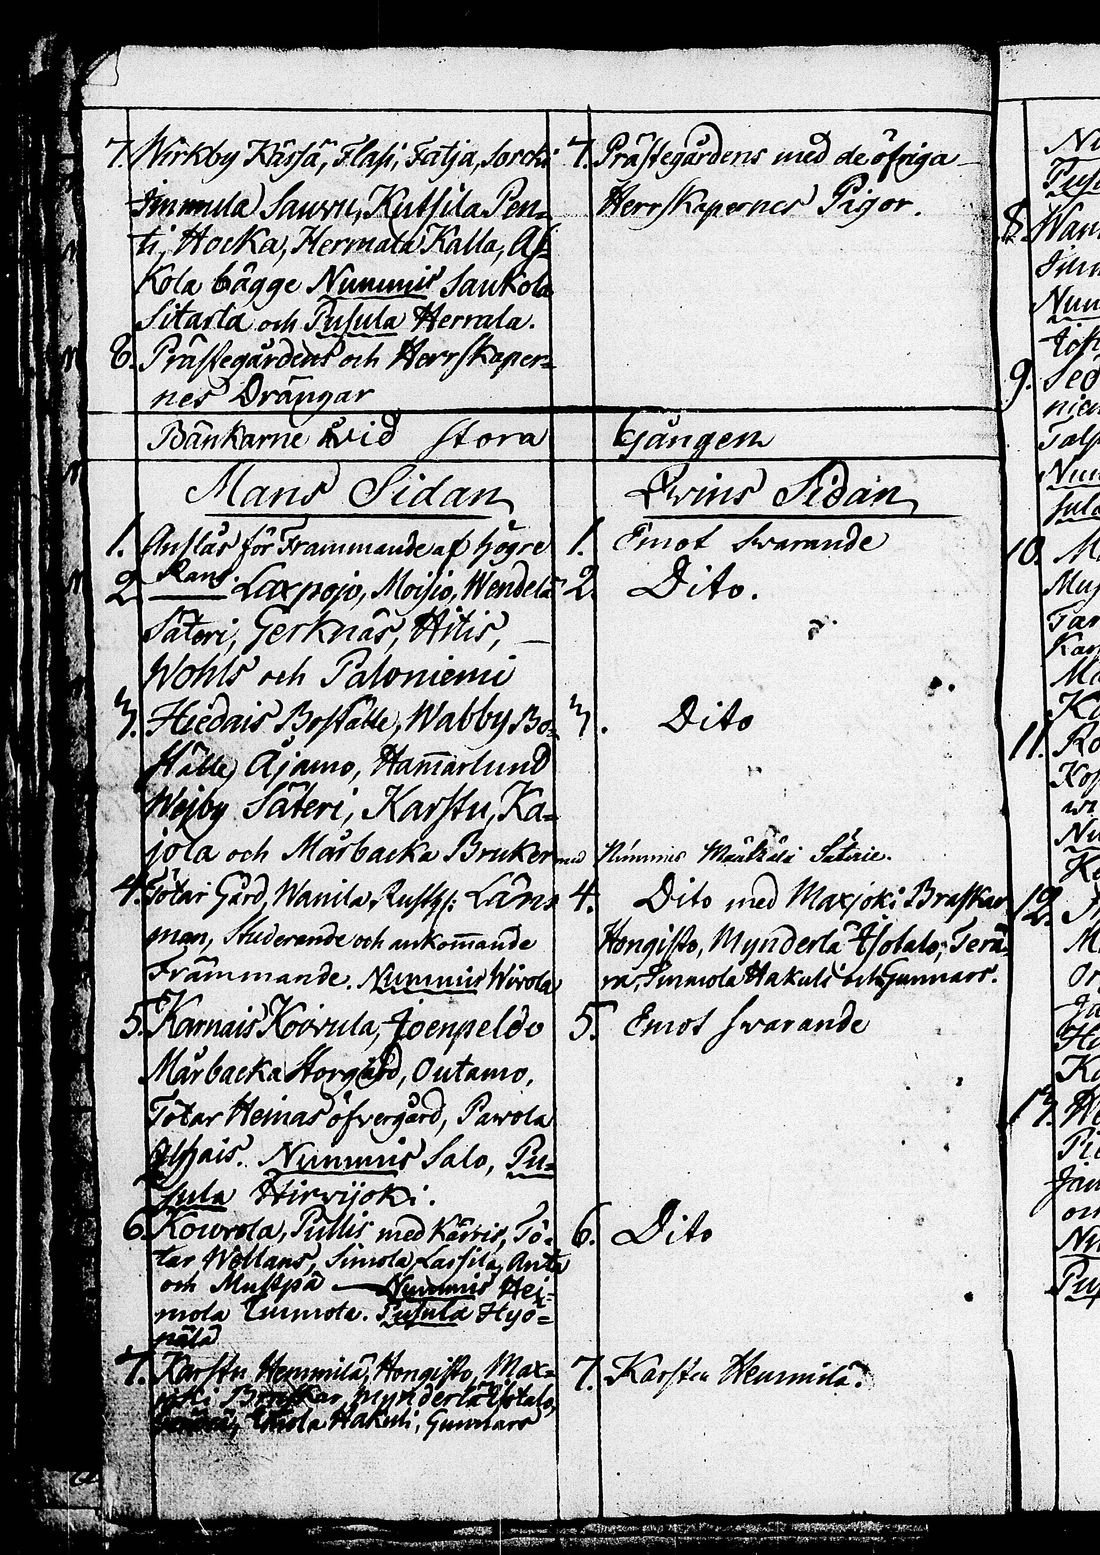 7. Wirkby Kärsä, Flasi, Tatja, Sorcki
Immula Sauvu, Kutsila Pen-
ti, Hocka, Hermala Kalla, As-
kola bägge Nummis Saukola
Sitarla och Pusula Herrala.
8. Prästegårdens och Herrskaper-
nes Drängar
7. Prästegårdens med de öfriga
Herrskapernes Pigor.
Bänkarne wid stora Gången
Mans Sidan
1. Anslås för Främmande af högre
Rang.
2. Laxpojo, Moisio, Wendelä
Säteri, Gerknäs, Hitis,
Wohls och Paloniemi
3. Hiedais Boställe, Wabby Bo-
ställe, Ajamo, Hamarlund
Wejby Säteri, Karstu, Ka-
jola och Mårbacka Bruker
4. Tötar Gård, Wanila Rusth: Läns
man, Studerande och ankommande
Främmande. Nummis Wivola
5. Karnais Koivula, Joenpeldo
Mårbacka Storgård, Outamo,
Tötar Heinas öfvergård, Pavola
Nummis Salo, Pu-
sula Hirvijoki.
6. Kowrola, Pullis med Kärris, Tö-
tar Wollans, Simola, Lassila, Anta
och Mustpä Nummis Hei-
mola Tummola. Pusula Hyö-
nälä
7. Karstu Hemmilä, Hongisto, Max-
joki Braskar, Mynderlä Isotalo,
Hakuli, Gunnars
Qwins Sidan
1. Emot swarande
2. Dito.
3. Dito
med Nummis Mäkkälä Säterie.
4. Dito med Maxjoki Braskar
Hongisto, Mynderlä Isotalo, Terä-
ra, Immola Hakuli och Gunnars.
5. Emot swarande
6. Dito
7. Karstu Hemmilä.
8.
9.
10.
11.
12.
13.